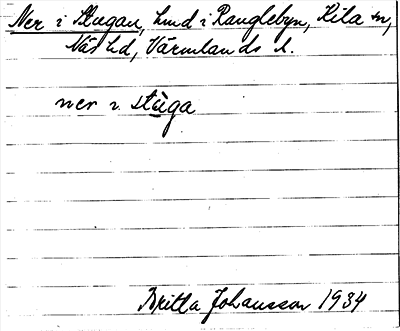 Ner i Stugan, hmd i Ranglebyn, Kila sn,
Näs hd, Värmlands l.
ner i stùga
Britta Johansson 1934